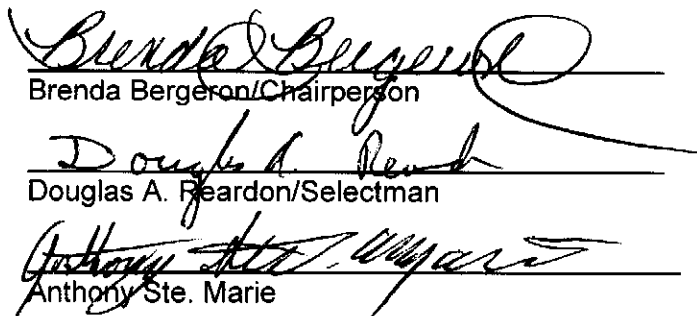 Brenda Bergeron
Brenda Bergeron/Chairperson
Douglas A. Reardon
Douglas A. Reardon/Selectman
Anthony Ste. Marie
Anthony Ste. Marie